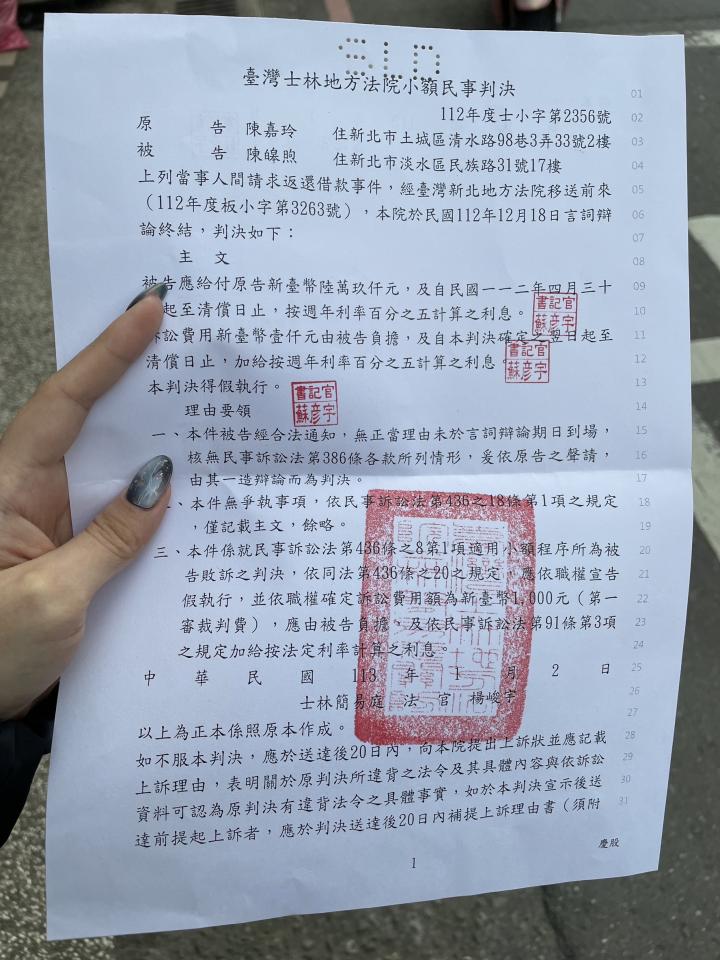 SLD
臺灣士林地方法院小額民事判決
01
112年度士小字第2356號
02
原告 陳嘉玲 住新北市土城區清水路98巷3弄33號2樓
03
被告 陳皞煦 住新北市淡水區民族路31號17樓
04
上列當事人間請求返還借款事件,經臺灣新北地方法院移送前來
05
(112年度板小字第3263號),本院於民國112年12月18日言詞辯
06
論終結,判決如下:
07
主文
08
被告應給付原告新臺幣陸萬玖仟元,及自民國一一二年四月三十
09
起至清償日止,按週年利率百分之五計算之利息。
10
書記官
蘇彥宇
訴訟費用新臺幣壹仟元由被告負擔,及自本判決確定之翌日起至
11
清償日止,加給按週年利率百分之五計算之利息。
12
書記官
蘇彥宇
本判決得假執行。
13
書記官
蘇彥宇
理由要領
14
一、本件被告經合法通知,無正當理由未於言詞辯論期日到場,
15
核無民事訴訟法第386條各款所列情形,爰依原告之聲請,
16
由其一造辯論而為判決。
17
、本件無爭執事項,依民事訴訟法第436之18條第1項之規定
18
,僅記載主文,餘略。
19
三、本件係就民事訴訟法第436條之8第1項適用小額程序所為被
20
告敗訴之判決,依同法第436條之20之規定,應依職權宣告
21
假執行,並依職權確定訴訟費用額為新臺幣1,000元(第一
22
審裁判費),應由被告負擔,及依民事訴訟法第91條第3項
23
之規定加給按法定利率計算之利息。
24
中華民國113年1月2日
25
士林簡易庭 法官 楊峻宇
26
27
以上為正本係照原本作成。
28
如不服本判決,應於送達後20日內,向本院提出上訴狀並應記載
29
上訴理由,表明關於原判決所違背之法令及其具體內容與依訴訟
30
資料可認為原判決有違背法令之具體事實,如於本判決宣示後送
31
達前提起上訴者,應於判決送達後20日內補提上訴理由書(須附
慶股
1